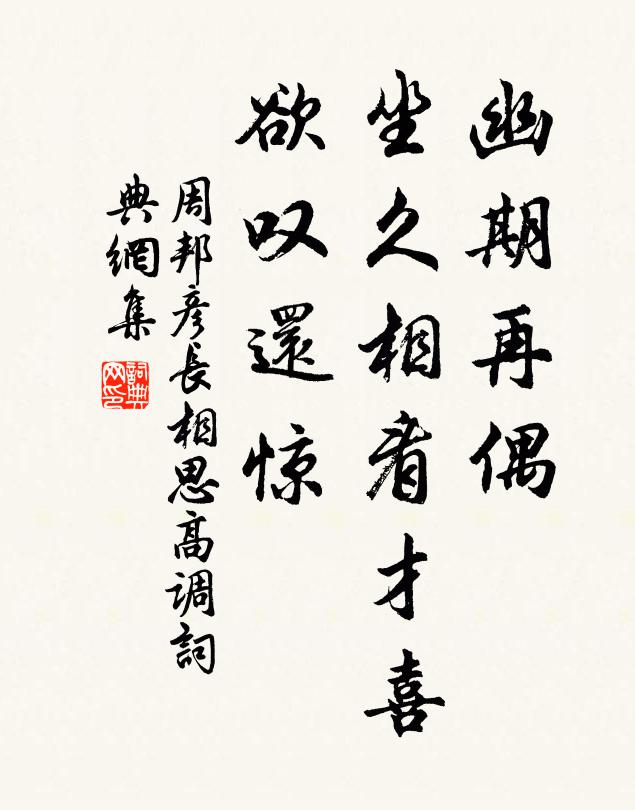 幽期再偶
坐久相看才喜
欲叹還惊
周邦彦長相思高调詞
典網集
詞典
网印